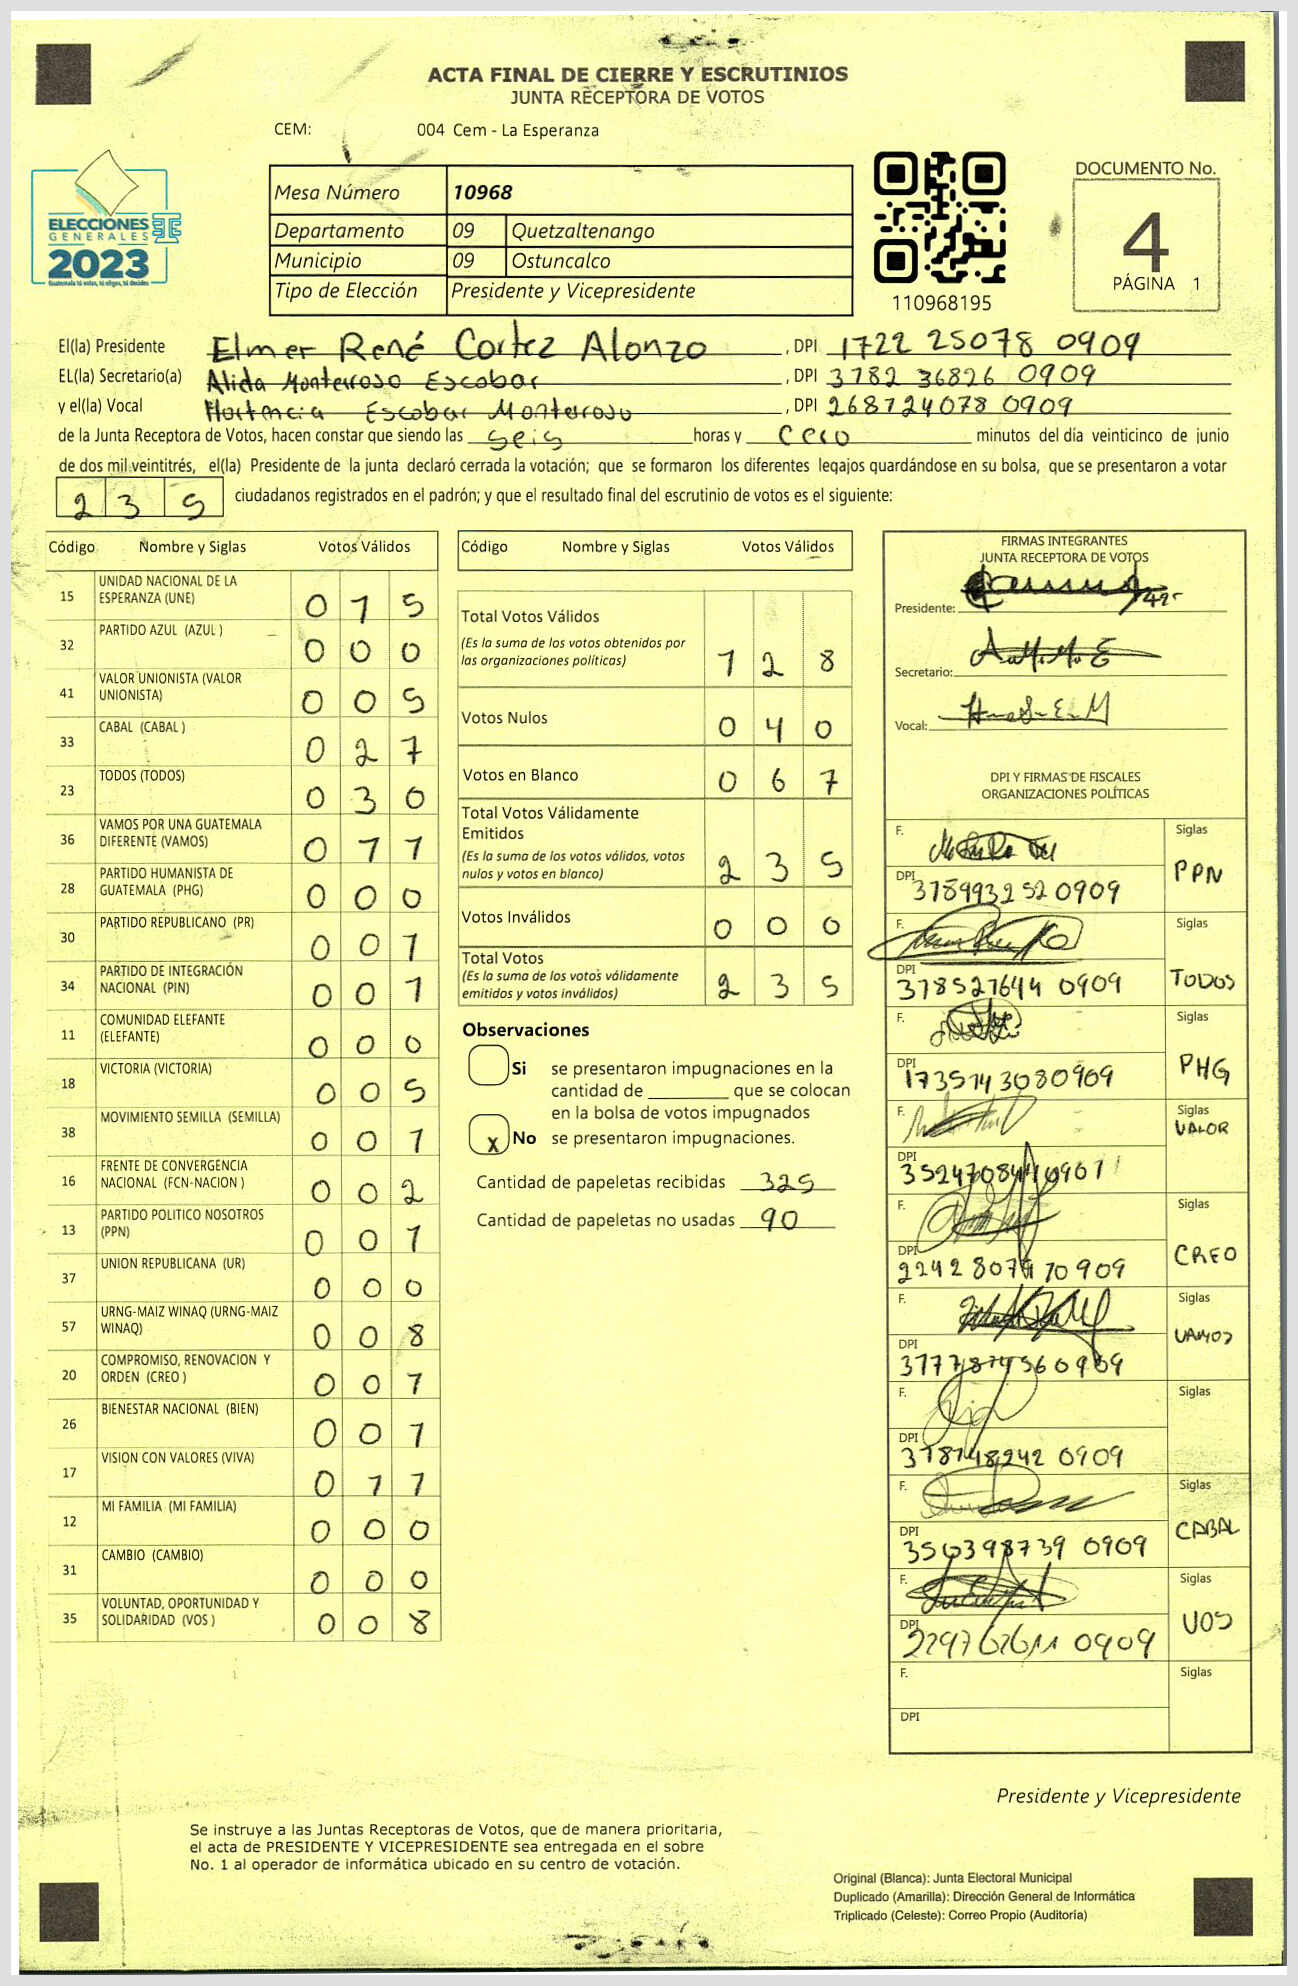 ACTA FINAL DE CIERRE Y ESCRUTINIOS
JUNTA RECEPTORA DE VOTOS
CEM: 004 Cem - La Esperanza
ELECCIONES
GENERALES
2023
Guatemala tú votas, tú eliges, tú decides
Mesa Número 10968
Departamento 09 Quetzaltenango
Municipio 09 Ostuncalco
Tipo de Elección Presidente y Vicepresidente
110968195
DOCUMENTO No.
4
PÁGINA 1
El(la) Presidente Elmer René Cortez Alonzo, DPI 1722 25078 0909
EL(la) Secretario(a) Alida Monterroso Escobar, DPI 3782 36826 0909
y el(la) Vocal Hortencia Escobar Monterroso, DPI 268724078 0909
de la Junta Receptora de Votos, hacen constar que siendo las seis horas y cero minutos del día veinticinco de junio
de dos mil veintitrés, el(la) Presidente de la junta declaró cerrada la votación; que se formaron los diferentes legajos guardándose en su bolsa, que se presentaron a votar
235 ciudadanos registrados en el padrón; y que el resultado final del escrutinio de votos es el siguiente:
Código Nombre y Siglas Votos Válidos
15 UNIDAD NACIONAL DE LA ESPERANZA (UNE) 0 1 5
32 PARTIDO AZUL (AZUL ) 0 0 0
41 VALOR UNIONISTA (VALOR UNIONISTA) 0 0 5
33 CABAL (CABAL ) 0 2 7
23 TODOS (TODOS) 0 3 0
36 VAMOS POR UNA GUATEMALA DIFERENTE (VAMOS) 0 1 1
28 PARTIDO HUMANISTA DE GUATEMALA (PHG) 0 0 0
30 PARTIDO REPUBLICANO (PR) 0 0 1
34 PARTIDO DE INTEGRACIÓN NACIONAL (PIN) 0 0 1
11 COMUNIDAD ELEFANTE (ELEFANTE) 0 0 0
18 VICTORIA (VICTORIA) 0 0 5
38 MOVIMIENTO SEMILLA (SEMILLA) 0 0 1
16 FRENTE DE CONVERGENCIA NACIONAL (FCN-NACION ) 0 0 2
13 PARTIDO POLITICO NOSOTROS (PPN) 0 0 1
37 UNION REPUBLICANA (UR) 0 0 0
57 URNG-MAIZ WINAQ (URNG-MAIZ WINAQ) 0 0 8
20 COMPROMISO, RENOVACION Y ORDEN (CREO ) 0 0 1
26 BIENESTAR NACIONAL (BIEN) 0 0 1
17 VISION CON VALORES (VIVA) 0 1 1
12 MI FAMILIA (MI FAMILIA) 0 0 0
31 CAMBIO (CAMBIO) 0 0 0
35 VOLUNTAD, OPORTUNIDAD Y SOLIDARIDAD (VOS ) 0 0 8
Código Nombre y Siglas Votos Válidos
Total Votos Válidos
(Es la suma de los votos obtenidos por
las organizaciones políticas) 1 2 8
Votos Nulos 0 4 0
Votos en Blanco 0 6 7
Total Votos Válidamente
Emitidos
(Es la suma de los votos válidos, votos
nulos y votos en blanco) 2 3 5
Votos Inválidos 0 0 0
Total Votos
(Es la suma de los votos válidamente
emitidos y votos inválidos) 2 3 5
Observaciones
Si se presentaron impugnaciones en la
cantidad de ________ que se colocan
en la bolsa de votos impugnados
x No se presentaron impugnaciones.
Cantidad de papeletas recibidas 325
Cantidad de papeletas no usadas 90
FIRMAS INTEGRANTES
JUNTA RECEPTORA DE VOTOS
Presidente:
Secretario:
Vocal:
DPI Y FIRMAS DE FISCALES
ORGANIZACIONES POLÍTICAS
F. Siglas
DPI 378993252 0909 PPN
F. Siglas
DPI 378527644 0909 TODOS
F. Siglas
DPI 1735143080909 PHG
F. Siglas
VALOR
DPI
F. Siglas
DPI CREO
F. Siglas
DPI VAMOS
F. Siglas
DPI
F. Siglas
DPI 350398739 0909 CABAL
F. Siglas
DPI VOS
F. Siglas
DPI
Presidente y Vicepresidente
Se instruye a las Juntas Receptoras de Votos, que de manera prioritaria,
el acta de PRESIDENTE Y VICEPRESIDENTE sea entregada en el sobre
No. 1 al operador de informática ubicado en su centro de votación.
Original (Blanca): Junta Electoral Municipal
Duplicado (Amarilla): Dirección General de Informática
Triplicado (Celeste): Correo Propio (Auditoría)